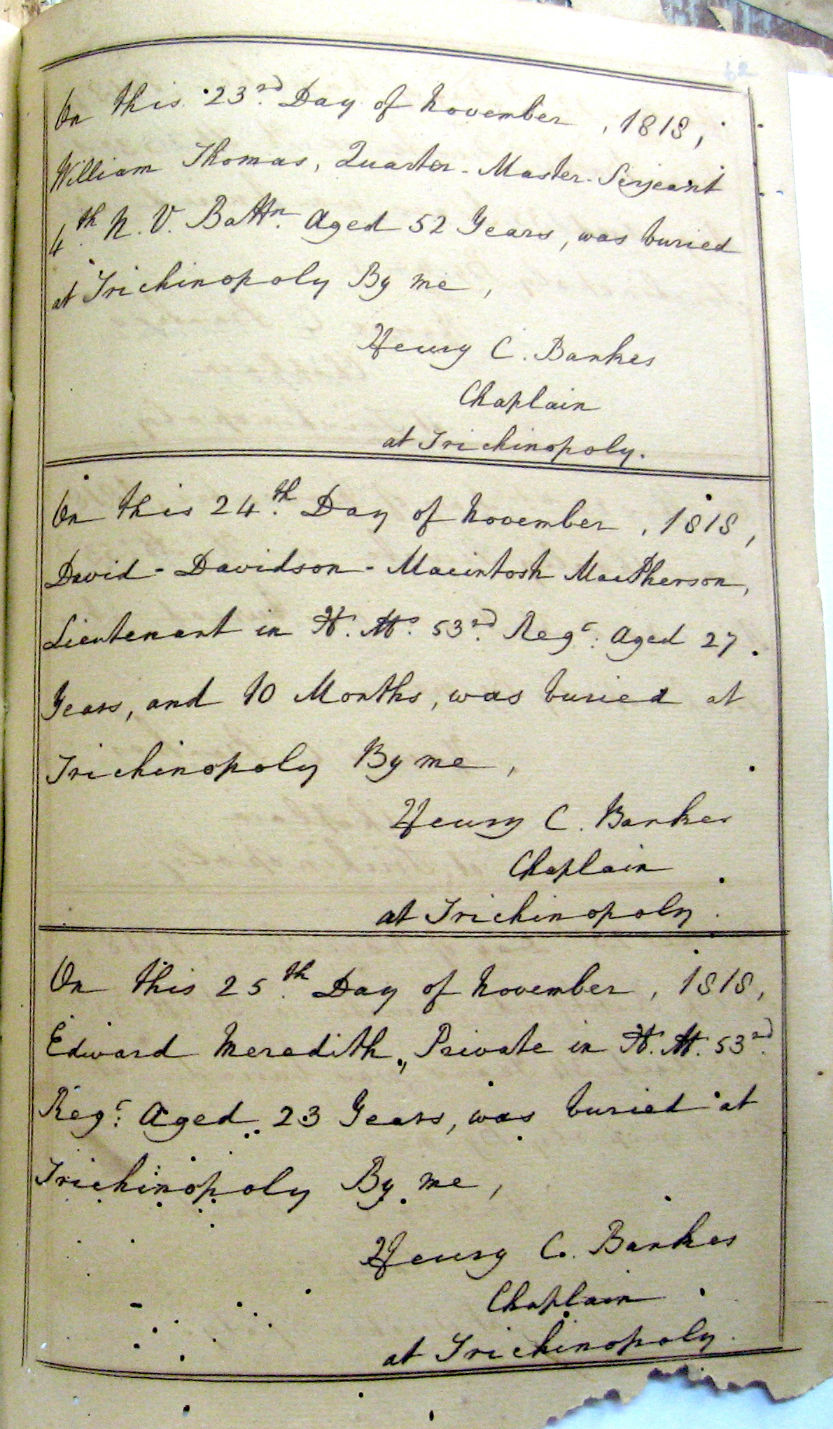 62
On this 23rd Day of November, 1818,
William Thomas, Quarter-Master-Serjeant
4th N. V. Battn. Aged 52 Years, was buried
at Trichinopoly By me,
Henry C. Bankes
Chaplain
at Trichinopoly.
On this 24th Day of November, 1818,
David-Davidson-Macintosh MacPherson,
Lieutenant in H. M. 53rd Regt. Aged 27
Years, and 10 Months, was buried at
Trichinopoly By me,
Henry C. Bankes
Chaplain
at Trichinopoly.
On this 25th Day of November, 1818,
Edward Meredith, Private in H. M. 53rd
Regt. Aged 23 Years, was buried at
Trichinopoly By me,
Henry C. Bankes
Chaplain
at Trichinopoly.